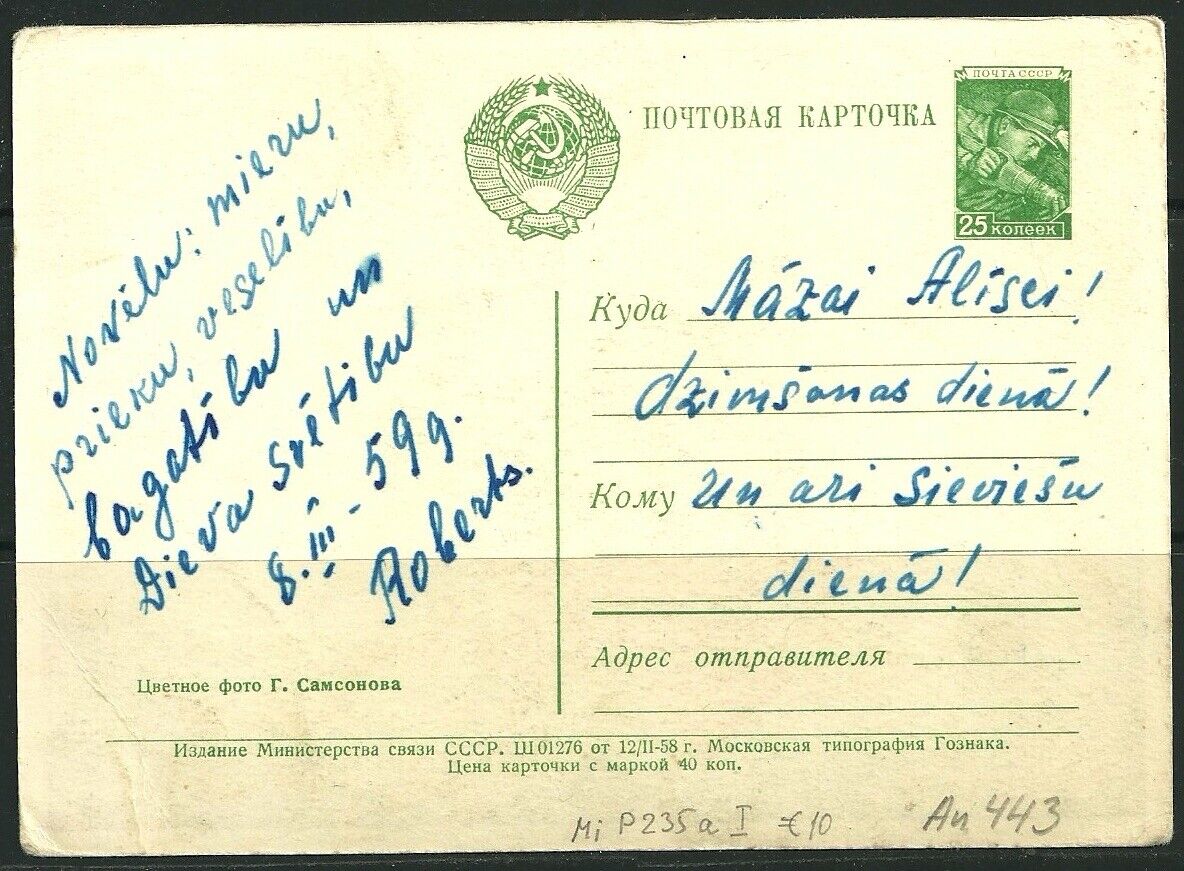 Novēlu: mieru,
prieku, veselību,
bagatību un
Dieva svētību
8.III-59g.
Roberts.
ПОЧТОВАЯ КАРТОЧКА
ПОЧТА СССР
25 копеек
Куда Māzai Alīsei!
dzimšanas dienā!
Кому Un ari Sieviešu
dienā!
Адрес отправителя
Цветное фото Г. Самсонова
Издание Министерства связи СССР. Ш01276 от 12/II-58 г. Московская типография Гознака.
Цена карточки с маркой 40 коп.
Mi P235a I €10
An 443